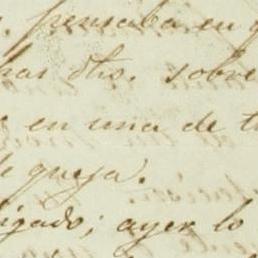 . pensaba en q
has dts. sobre
en una de t
de queja.
igado; ayer lo